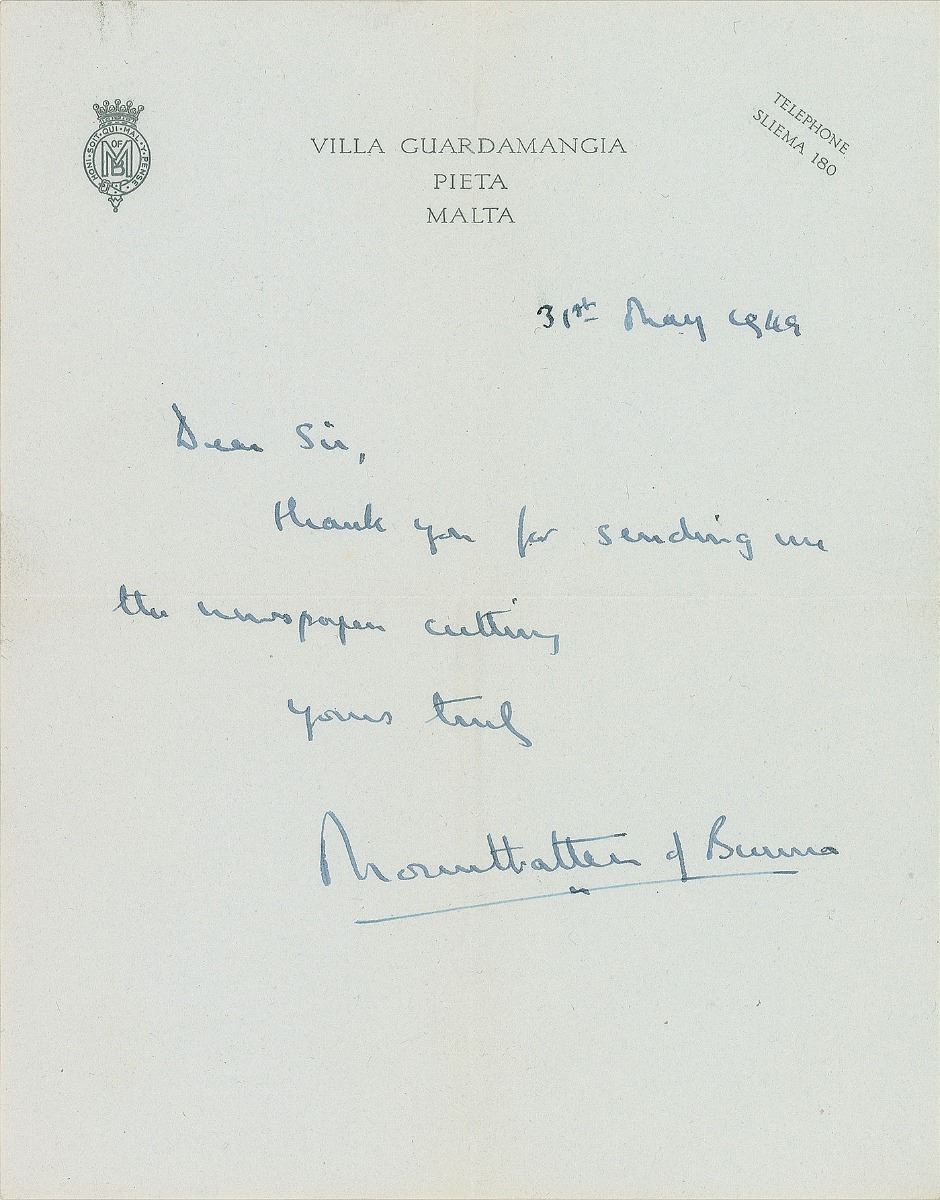 HONI · SOIT · QUI · MAL · Y · PENSE
M OF B
VILLA GUARDAMANGIA
PIETA
MALTA
TELEPHONE
SLIEMA 180
31st May 1949
Dear Sir,
Thank you for sending me
the newspaper cutting
Yours truly
Mountbatten of Burma